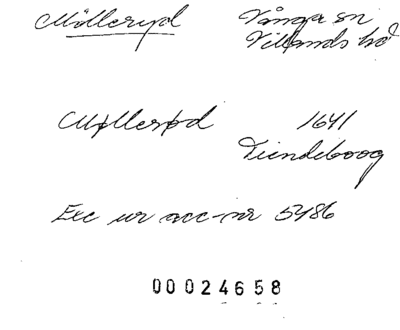 Mölleryd Vånga sn
Villands hd
Møllerød 1641
Tiendeboog
Exc ur acc-nr 5486
00024658